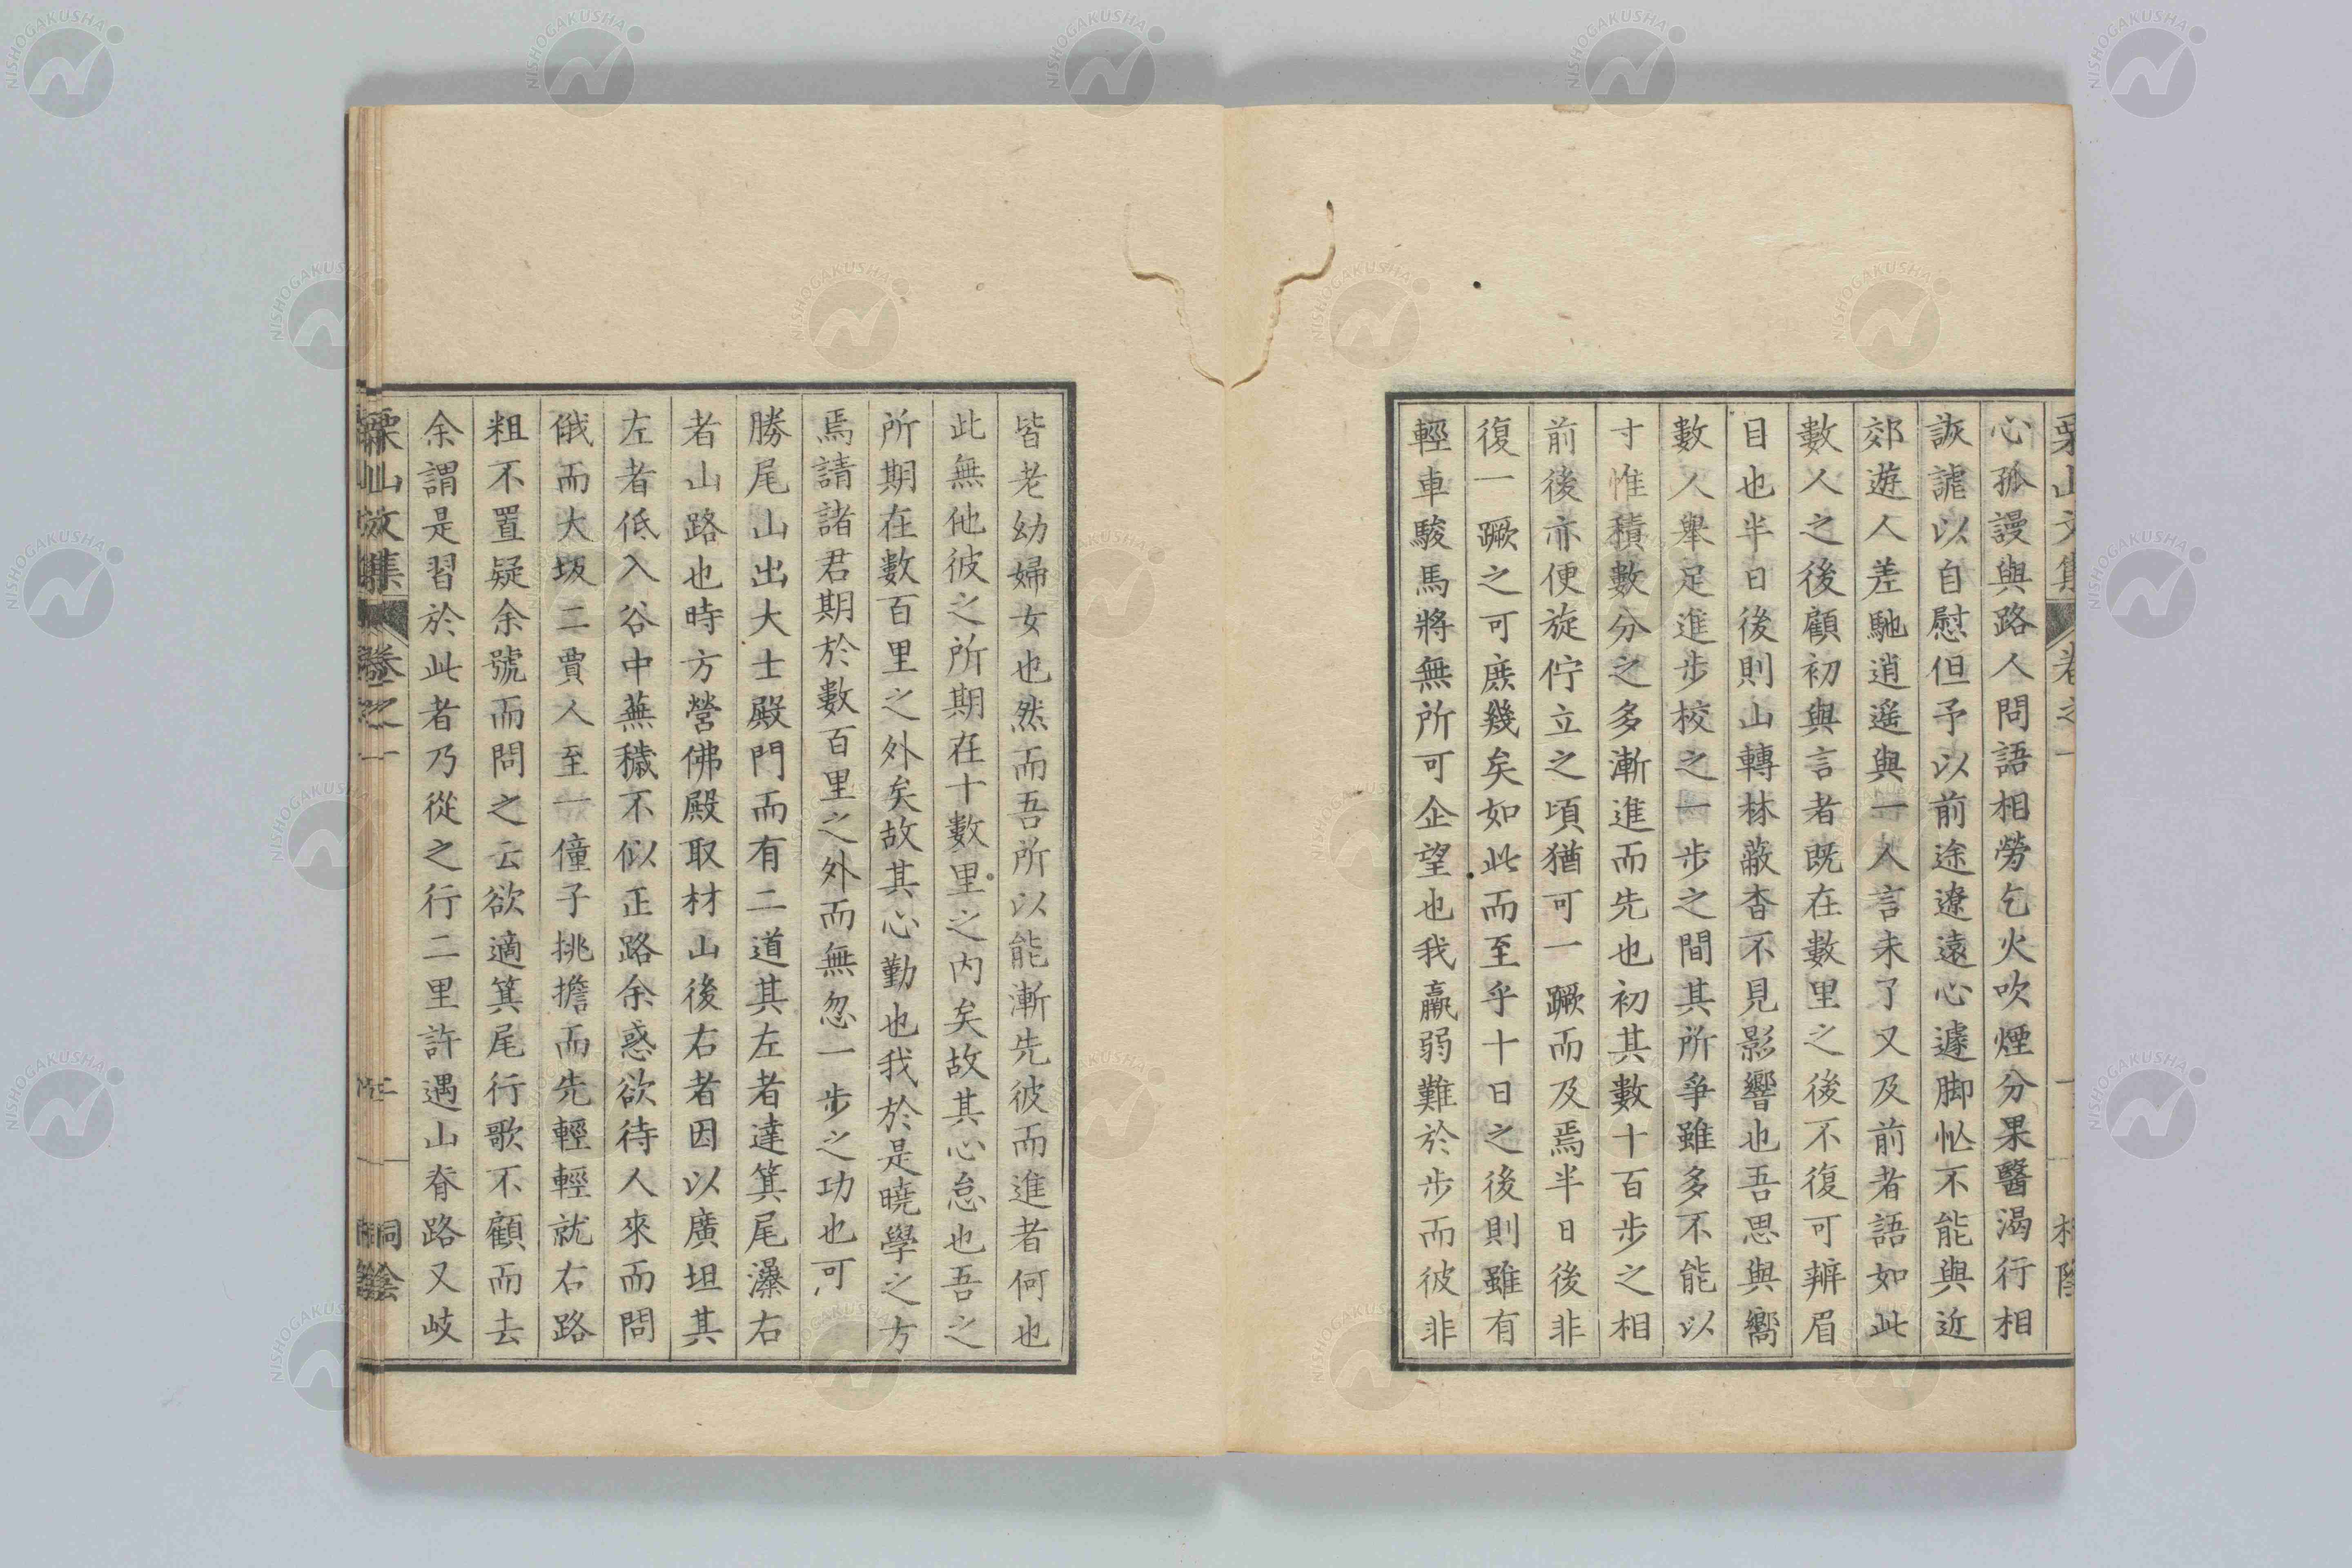 心孤謾與路人問語相勞乞火吹煙分果醫渴行相
詼謔以自慰但予以前途遼遠心遽脚忙不能與近
郊遊人差馳逍遙與一人言未了又及前者語如此
數人之後顧初與言者既在數里之後不復可辨眉
目也半日後則山轉林蔽杳不見影響也吾思與嚮
數人舉足進步校之一步之間其所爭雖多不能以
寸惟積數分之多漸進而先也初其數十百步之相
前後亦便旋佇立之頃猶可一蹶而及焉半日後非
復一蹶之可庶幾矣如此而至乎十日之後則雖有
輕車駿馬將無所可企望也我羸弱難於步而彼非
皆老幼婦女也然而吾所以能漸先彼而進者何也
此無他彼之所期在十數里之内矣故其心怠也吾之
所期在數百里之外矣故其心勤也我於是曉學之方
焉請諸君期於數百里之外而無忽一步之功也可
勝尾山出大士殿門而有二道其左者達箕尾瀑右
者山路也時方營佛殿取材山後右者因以廣坦其
左者低入谷中蕪穢不似正路余惑欲待人來而問
俄而大坂二賈人至一僮子挑擔而先輕輕就右路
粗不置疑余號而問之云欲適箕尾行歌不顧而去
余謂是習於此者乃從之行二里許遇山脊路又岐
栗山文集 卷之一
NISHOGAKUSHA